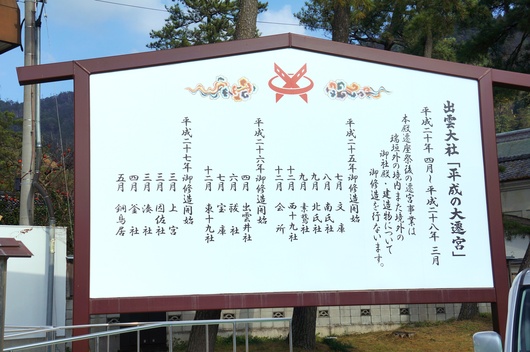 出雲大社「平成の大遷宮」
平成二十年 四月～平成二十八年 三月
本殿遷座祭後の遷宮事業は
瑞垣外の境内また境外の
御社殿・建造物について
御修造を行ないます。
平成二十五年御修造開始
七月 文庫
八月 南氏社
九月 北氏社
九月 素鵞社
十二月 西十九社
十二月 会所
平成二十六年御修造開始
四月 出雲井社
六月 祓社
七月 宝庫
十二月 東十九社
平成二十七年御修造開始
三月 上宮
三月 因佐社
三月 湊社
四月 釜社
五月 銅鳥居